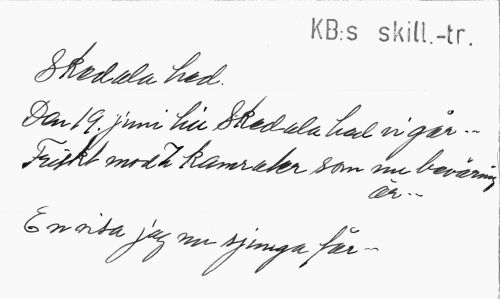 KB:s skill.-tr.
Skedala hed.
Den 19. juni till Skedala hed vi går --
Friskt mod I kamrater som nu beväring
är --
En visa jag nu sjunga får --